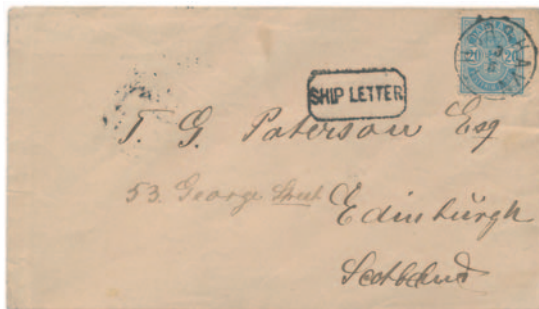 20 20
SHIP LETTER
T. G. Paterson Esq
53. George Street
Edinburgh
Scotland